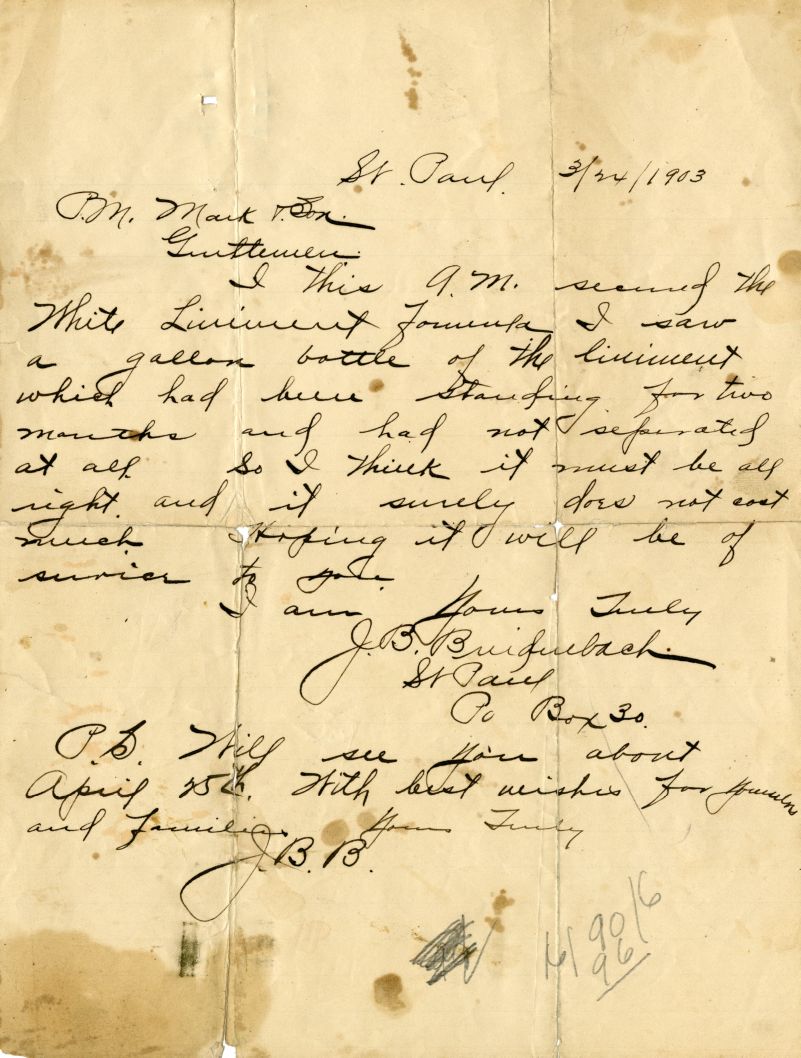 St. Paul. 3/24/1903
P.M. Mark & Son.
Gentlemen.
I this A.M. secured the
White Liniment Formula I saw
a gallon bottle of the liniment
which had been standing for two
months and had not seperated
at all So I think it must be all
right. and it surely does not cost
much Hoping it will be of
service to you.
I am Yours Truly
J. B.
St Paul
Po Box 30.
P.S. Will see you about
April 25th. With best wishes for
and families Yours Truly
J. B. B.
90/6
96